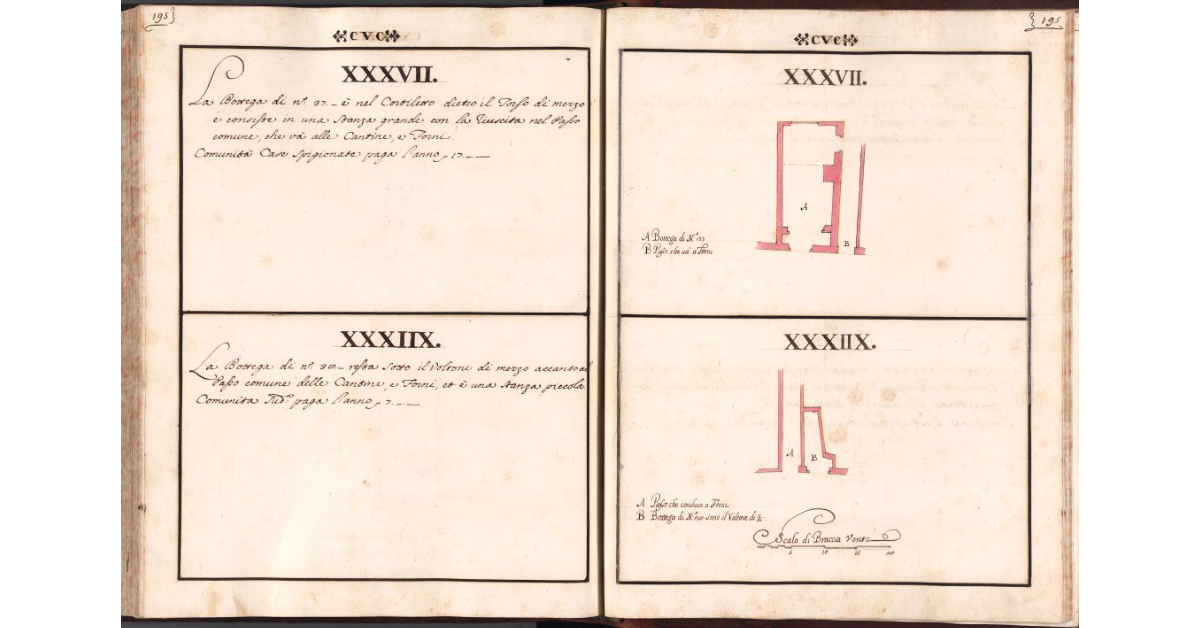 195
CVC
XXXVII.
La Bottega di n.º 37 — è nel Cortiletto dietro il Torso di mezzo
e consiste in una Stanza grande con la Riuscita nel Passo
comune, che và alle Cantine, e Forni
Comunità Case spigionate paga l'anno 17. —
XXXIIX.
La Bottega di n.º resta sotto il Voltone di mezzo accanto al
Passo comune delle Cantine, e Forni, et è una Stanza piccola
Comunità Sud.ª paga l'anno 7. —
195
CVC
XXXVII.
A
B
A Bottega di N.º 37
B Passo che và a Forni
XXXIIX.
A
B
A Passo che conduce a Forni
B Bottega di N.º sotto il Voltone di
Scala di Braccia Venti
5 10 15 20